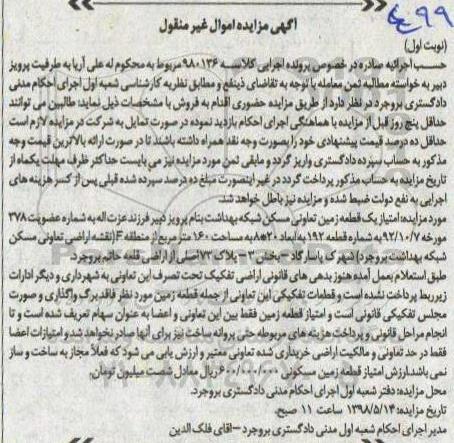 ۴۹۹
آگهی مزایده اموال غیر منقول
(نوبت اول)
حسب اجرائیه صادره در خصوص پرونده اجرایی کلاسه ۹۸۰۱۳۶ مربوط به محکوم له علی آریا به طرفیت پرویز
دبیر به خواسته مطالبه ثمن معامله با توجه به تقاضای ذینفع و مطابق نظریه کارشناسی شعبه اول اجرای احکام مدنی
دادگستری بروجرد در نظر دارد از طریق مزایده حضوری اقدام به فروش با مشخصات ذیل نماید: طالبین می توانند
حداقل پنج روز قبل از مزایده با هماهنگی اجرای احکام بازدید نموده در صورت تمایل به شرکت در مزایده لازم است
حداقل ده درصد قیمت پیشنهادی خود را بصورت وجه نقد همراه داشته باشند تا در صورت ارائه بالاترین قیمت وجه
مذکور به حساب سپرده دادگستری واریز گردد و مابقی ثمن مورد مزایده نیز می بایست حداکثر ظرف مهلت یکماه از
تاریخ مزایده به حساب مذکور پرداخت گردد در غیر اینصورت مبلغ ده درصد سپرده شده قبلی پس از کسر هزینه های
اجرایی به نفع دولت ضبط شده و مزایده نیز باطل خواهد شد.
مورد مزایده: امتیاز یک قطعه زمین تعاونی مسکن شبکه بهداشت بنام پرویز دبیر فرزند عزت اله به شماره عضویت ۳۷۸
مورخه ۹۲/۱۰/۷ به شماره قطعه ۱۹۲ به ابعاد ۲۰*۸ به مساحت ۱۶۰ مترمربع از منطقه F (نقشه اراضی تعاونی مسکن
شبکه بهداشت بروجرد) شهرک پاسارگاد - بخش ۲ - پلاک ۷۳ اصلی از اراضی قلعه حاتم بروجرد.
طبق استعلام بعمل آمده هنوز بدهی های قانونی اراضی تفکیک تحت تصرف این تعاونی به شهرداری و دیگر ادارات
زیربط پرداخت نشده است و قطعات تفکیکی این تعاونی از جمله قطعه زمین مورد نظر فاقد برگ واگذاری و صورت
مجلس تفکیکی قانونی است و امتیاز قطعه زمین فقط بین این تعاونی و اعضا به عنوان سهام تعریف شده است و تا
انجام مراحل قانونی و پرداخت هزینه های مربوطه حتی پروانه ساخت نیز برای آنها صادر نخواهد شد و امتیازات اعضا
فقط در حد تعاونی و مالکیت اراضی خریداری شده تعاونی معتبر و ارزش یابی می شود که فعلاً مجاز به ساخت و ساز
نمی باشد. ارزش امتیاز قطعه زمین مسکونی ۶۰۰/۰۰۰/۰۰۰ ریال معادل شصت میلیون تومان.
محل مزایده: دفتر شعبه اول اجرای احکام مدنی دادگستری بروجرد.
تاریخ مزایده: ۱۳۹۸/۵/۱۴ ساعت ۱۱ صبح.
مدیر اجرای احکام شعبه اول مدنی دادگستری بروجرد - آقای فلک الدین